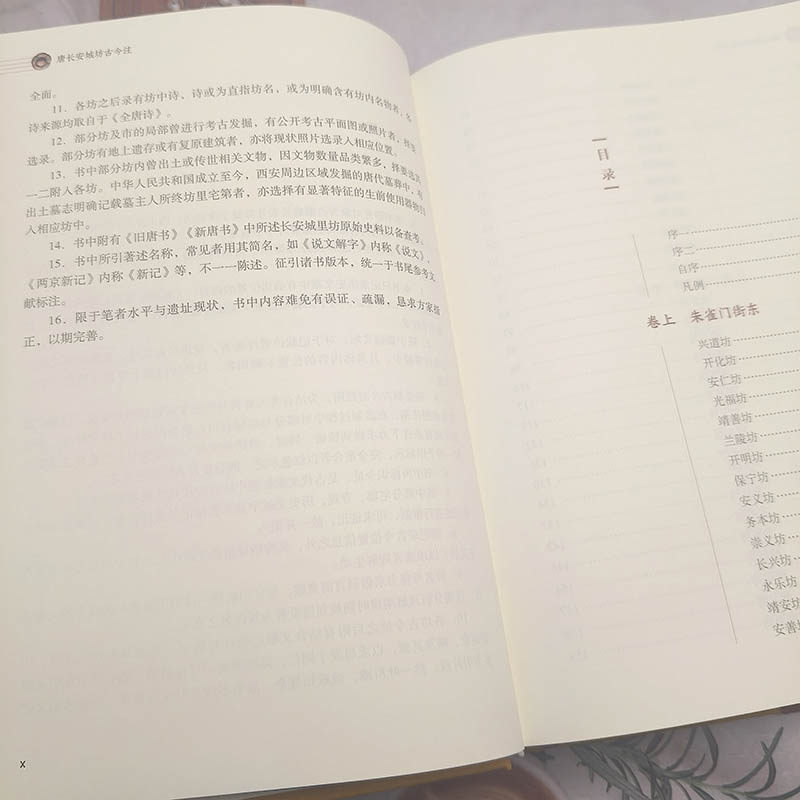 唐长安城坊古今注
全面。
11. 各坊之后录有坊中诗、诗或为直指坊名，或为明确含有坊内名物者，各
诗来源均取自于《全唐诗》。
12. 部分坊及市的局部曾进行考古发掘，有公开考古平面图或照片者，择要
选录。部分坊有地上遗存或有复原建筑者，亦将现状照片选录入相应位置。
13. 书中部分坊内曾出土或传世相关文物，因文物数量品类繁多，择要选其
一二附入各坊。中华人民共和国成立至今，西安周边区域发掘的唐代墓葬中，有
出土墓志明确记载墓主人所终坊里宅第者，亦选择有显著特征的生前使用器物附
入相应坊中。
14. 书中附有《旧唐书》《新唐书》中所述长安城里坊原始史料以备查考。
15. 书中所引著述名称，常见者用其简名，如《说文解字》内称《说文》，
《两京新记》内称《新记》等，不一一陈述。征引诸书版本，统一于书尾参考文
献标注。
16. 限于笔者水平与遗址现状，书中内容难免有误证、疏漏，恳求方家指
正，以期完善。
X
目录
序一
序二
自序
凡例
卷上 朱雀门街东
兴道坊
开化坊
安仁坊
光福坊
靖善坊
兰陵坊
开明坊
保宁坊
安义坊
务本坊
崇义坊
长兴坊
永乐坊
靖安坊
安善坊